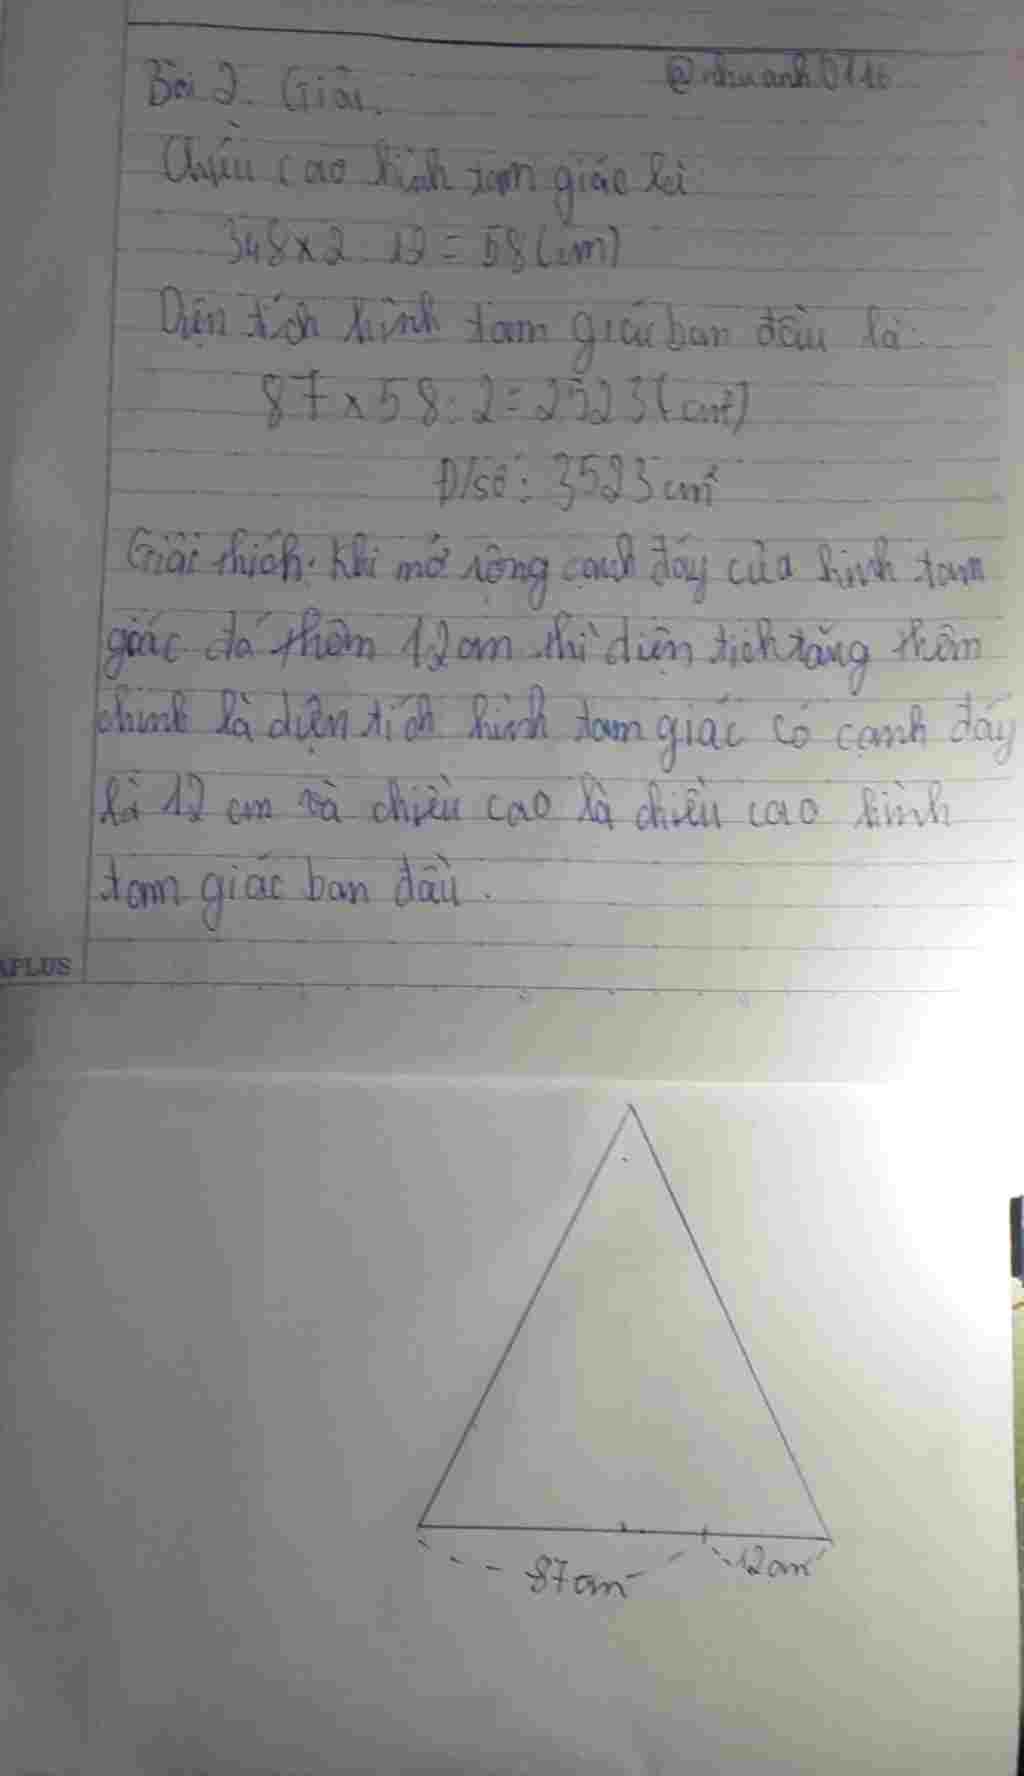 Bài 2. Giải.
@nhuanh0116
Chiều cao hình tam giác là
348 x 2 : 12 = 58 (cm)
Diện tích hình tam giác ban đầu là:
87 x 58 : 2 = 2523 (cm²)
Đ/số: 3523 cm²
Giải thích: Khi mở rộng cạnh đáy của hình tam
giác đó thêm 12cm thì diện tích tăng thêm
chính là diện tích hình tam giác có cạnh đáy
là 12 cm và chiều cao là chiều cao hình
tam giác ban đầu.
APLUS
87cm
12cm